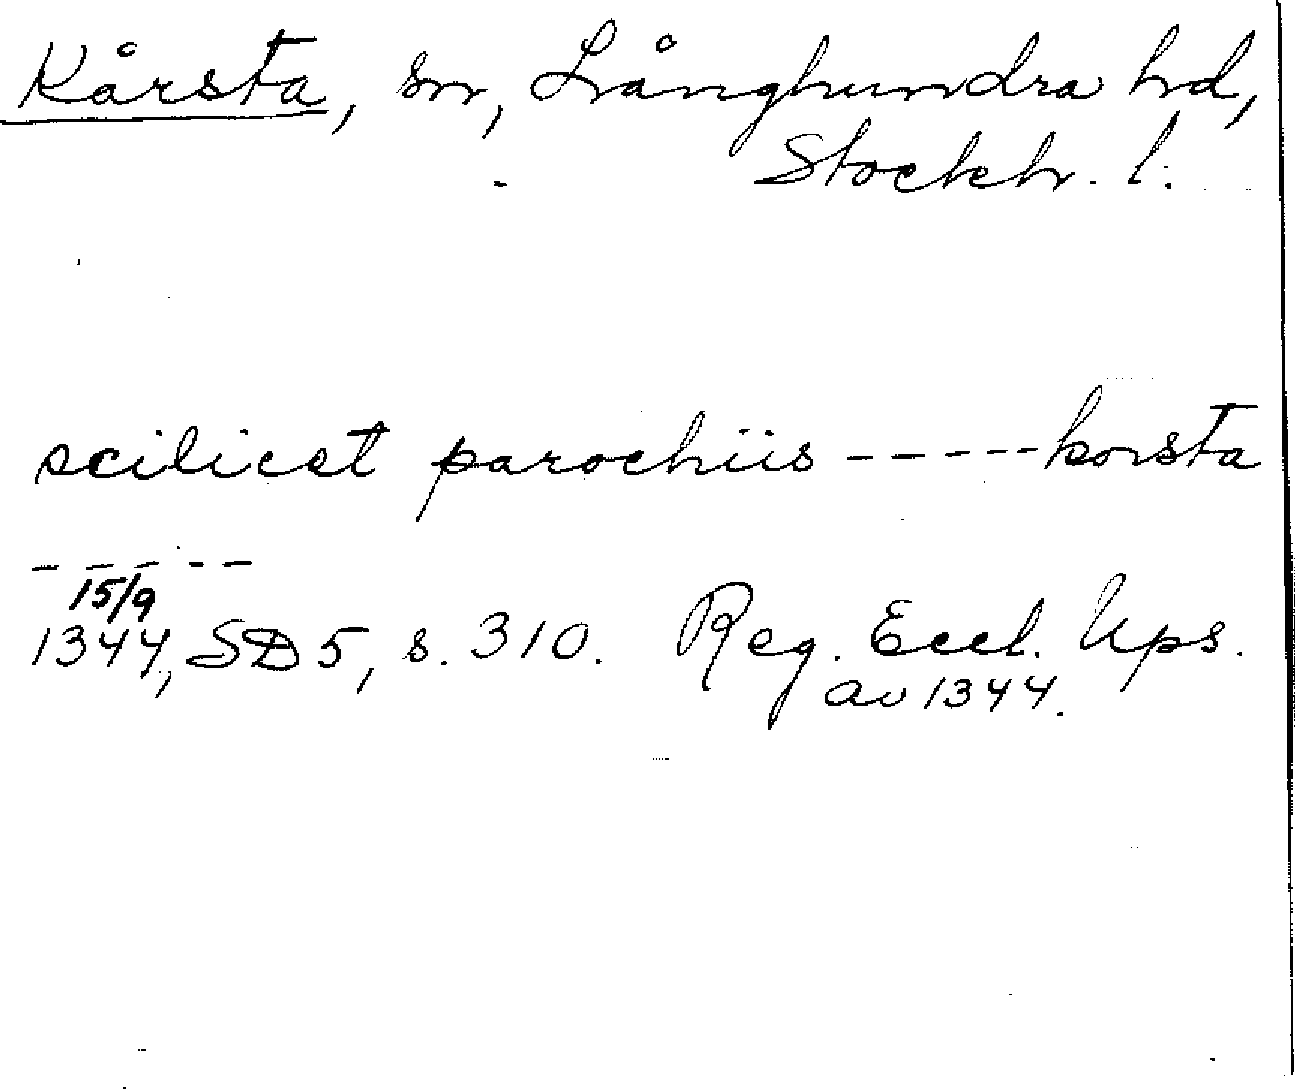 Kårsta, sn, Långhundra hd,
Stockh. l.
scilicet parochiis ----- korsta
-----
15/9
1344, SD 5, s. 310. Reg. Eccl. Ups.
av 1344.